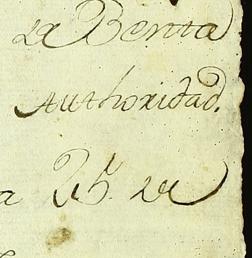 la Benta
Authoridad.
a 25. de